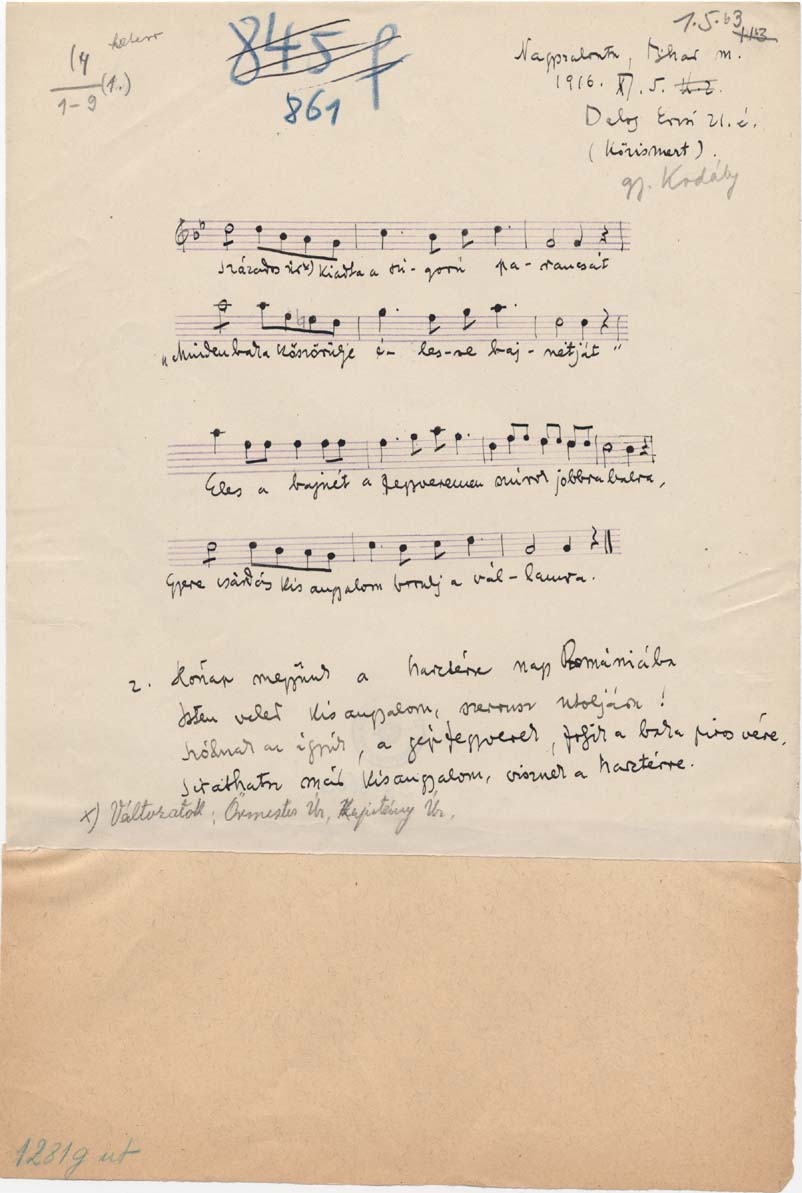 1.5.63 113
14
1-9 (1.)
845
861
Nagyszalonta, Bihar m.
1916. XI. 5.
Dalos Erzsi 21. é.
(Közismert).
gy. Kodály
Százados úr x) kiadta a szi-gorú pa-rancsát
„Minden baka köszörülje é-les-re baj-nétját"
Éles a bajnét a fegyveremen szúrok jobbra balra,
Gyere csárdás kis angyalom borulj a vál-lamra.
2. Hónap megyünk a harctérre nap Romániába
Isten veled kis angyalom, szervusz utoljára!
Szólnak az ágyúk, a gépfegyverek, folyik a baka piros vére,
Sirathatsz már kisangyalom, visznek a harctérre.
x) Változatok: Őrmester Úr, Kapitány Úr.
1281g út